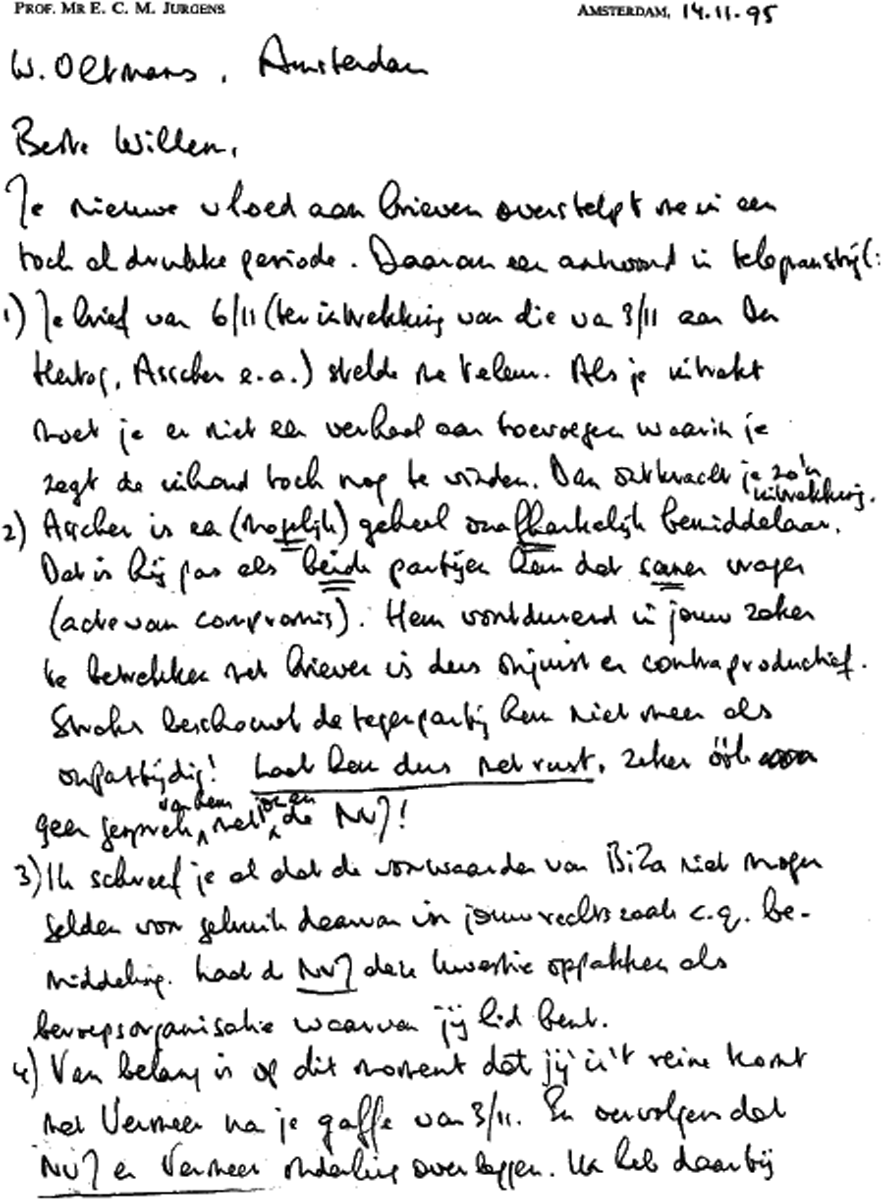 PROF. MR E. C. M. JURGENS AMSTERDAM, 14.11.95
W. Oltmans, Amsterdam
Beste Willem,
Je nieuwe vloed aan brieven overstelpt me in een
toch al drukke periode. Daarom een antwoord in telegramstijl:
1) Je brief van 6/11 (ter intrekking van die va 3/11 aan Den
Hertog, Asscher e.a.) stelde me teleur. Als je intrekt
moet je er niet een verhaal aan toevoegen waarin je
zegt de inhoud toch nog te vinden. Dan ontkracht je zo'n
intrekking.
2) Asscher is een (mogelijk) geheel onafhankelijk bemiddelaar.
Dat is hij pas als beide partijen hem dat samen vragen
(acte van compromis). Hem voortdurend in jouw zaken
te betrekken met brieven is dus onjuist en contraproductief.
Straks beschouwt de tegenpartij hem niet meer als
onpartijdig! Laat hem dus met rust. Zeker óók
geen gesprek van hem met jou en de NVJ!
3) Ik schreef je al dat de voorwaarden van BiZa niet mogen
gelden voor gebruik daarvan in jouw rechtszaak c.q. be-
middeling. Laat d NVJ deze kwestie oppakken als
beroepsorganisatie waarvan jij lid bent.
4) Van belang is op dit moment dat jij in 't reine komt
met Vermeer na je gaffe van 3/11. En vervolgens dat
NVJ en Vermeer onderling overleggen. Ik heb daarbij